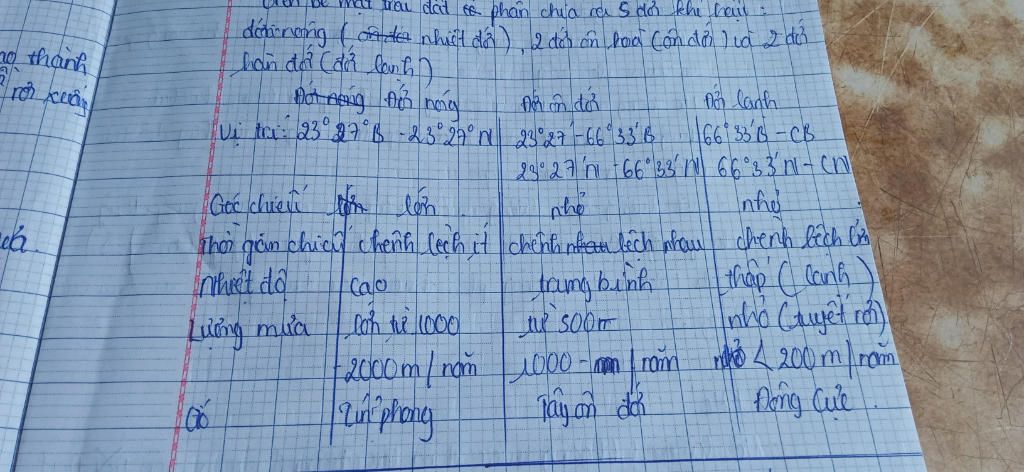 trên bề mặt trái đất phân chia ra 5 đới khí hậu:
đới nóng (nhiệt đới), 2 đới ôn hoà (ôn đới) và 2 đới
hàn đới (đới lạnh)
thành
rơi xuống
Đới nóng Đới ôn đới Đới lạnh
Vị trí: 23°27°B - 23°27°N 23°27' - 66°33'B 66°33'B - CB
23°27'N - 66°33'N 66°33'N - CN
Góc chiếu lớn nhỏ nhỏ
Thời gian chiếu chênh lệch ít chênh lệch nhau chênh lệch lớn
Nhiệt độ cao trung bình thấp (lạnh)
Lượng mưa lớn từ 1000 từ 500m nhỏ (tuyết rơi)
- 2000m/năm 1000 - /năm < 200m/năm
Gió Tín phong Tây ôn đới Đông Cực.